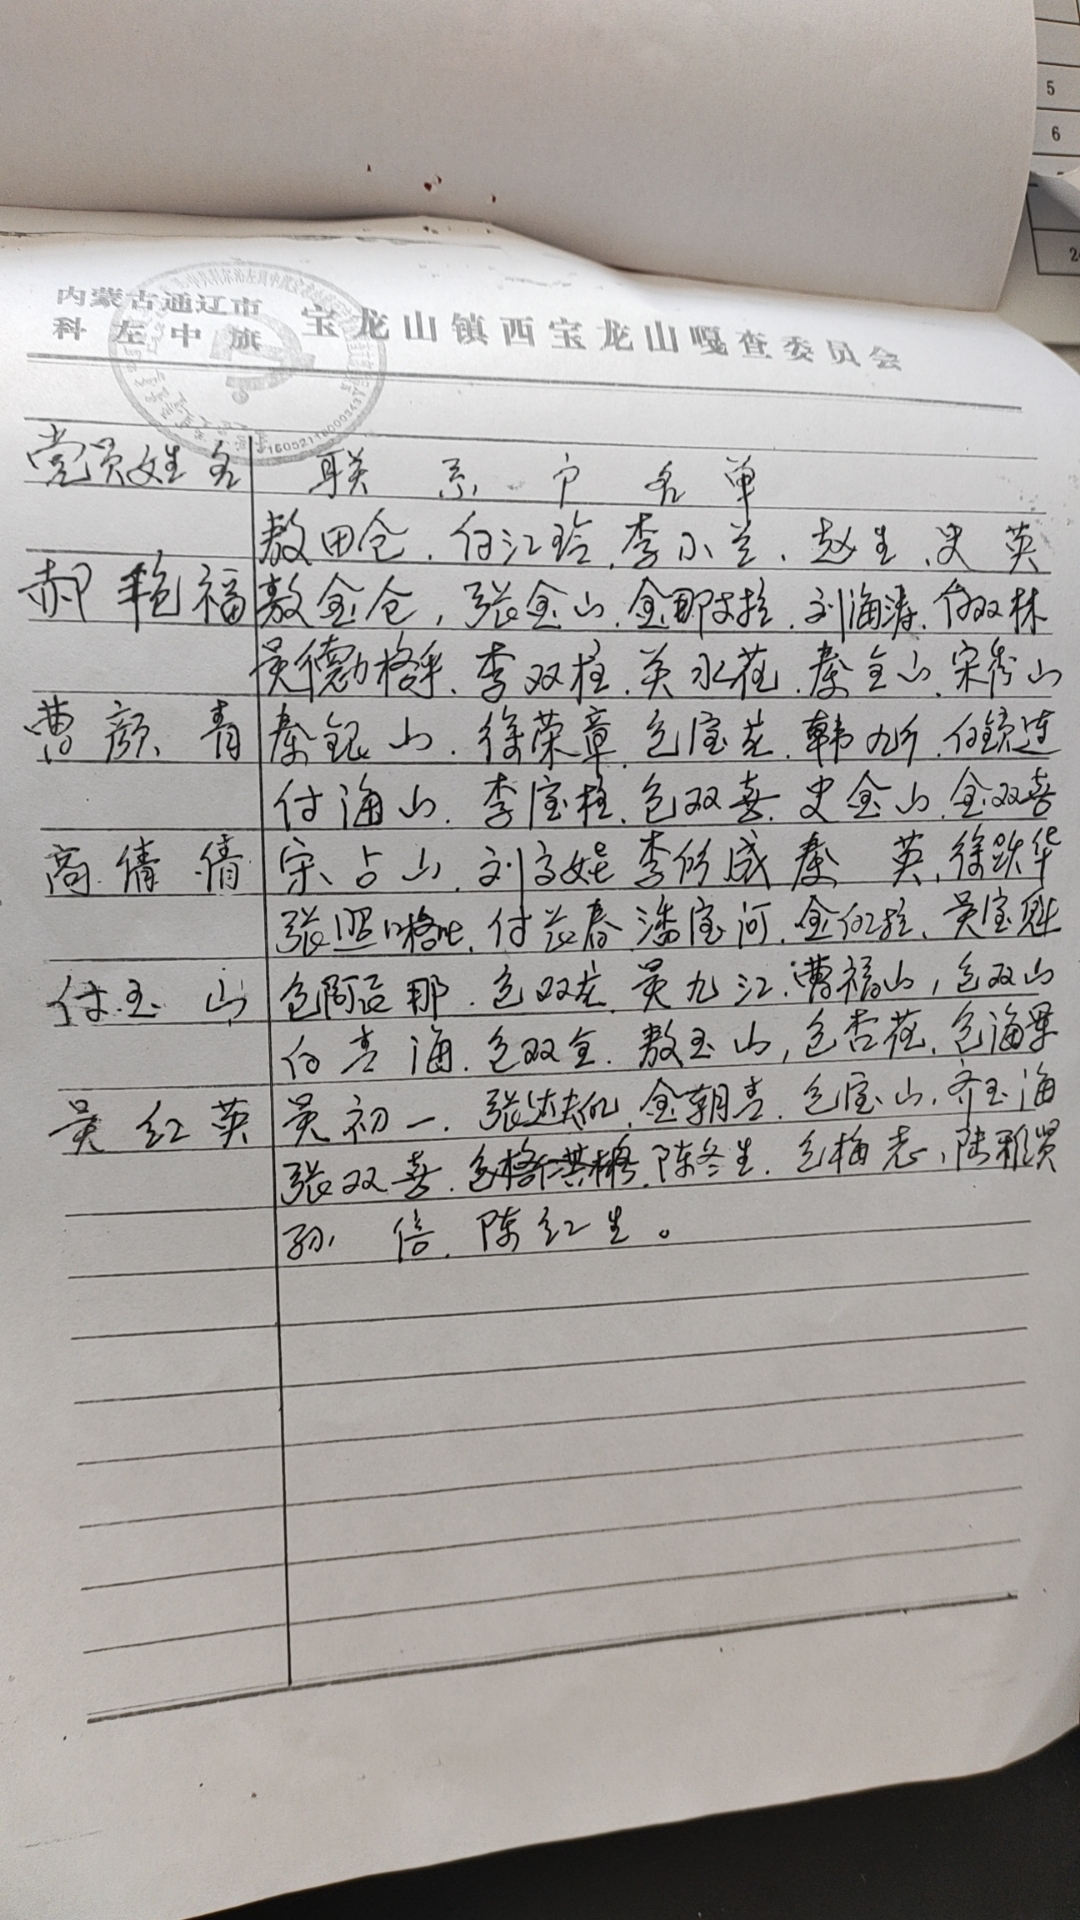 5
6
2
内蒙古通辽市
科左中旗 宝龙山镇西宝龙山嘎查委员会
党员姓名 联系户名单
敖田仓、付江玲、李小兰、赵生、史英
郝艳福 敖金仓，张金山、金那木拉、刘海涛、付双林
吴德力格尔、李双柱、关水花、秦金山、宋秀山
曹颜青 秦银山、徐荣章、包宝花、韩九斤、付锁连
付海山、李宝柱、包双喜、史金山、金双喜
高倩倩 宋占山、刘高娃 李的成 秦英、徐跃华
付长春、潘宝河、吴宝魁
付玉山 包阿臣那、包双龙、吴九江、曹福山，包双山
付青海、包双全、敖玉山，包杏花、包海军
吴红英 吴初一、金朝青、包宝山、齐玉海
张双喜、陈冬生、包梅志、陆雅贤
孙倍、陈红生。